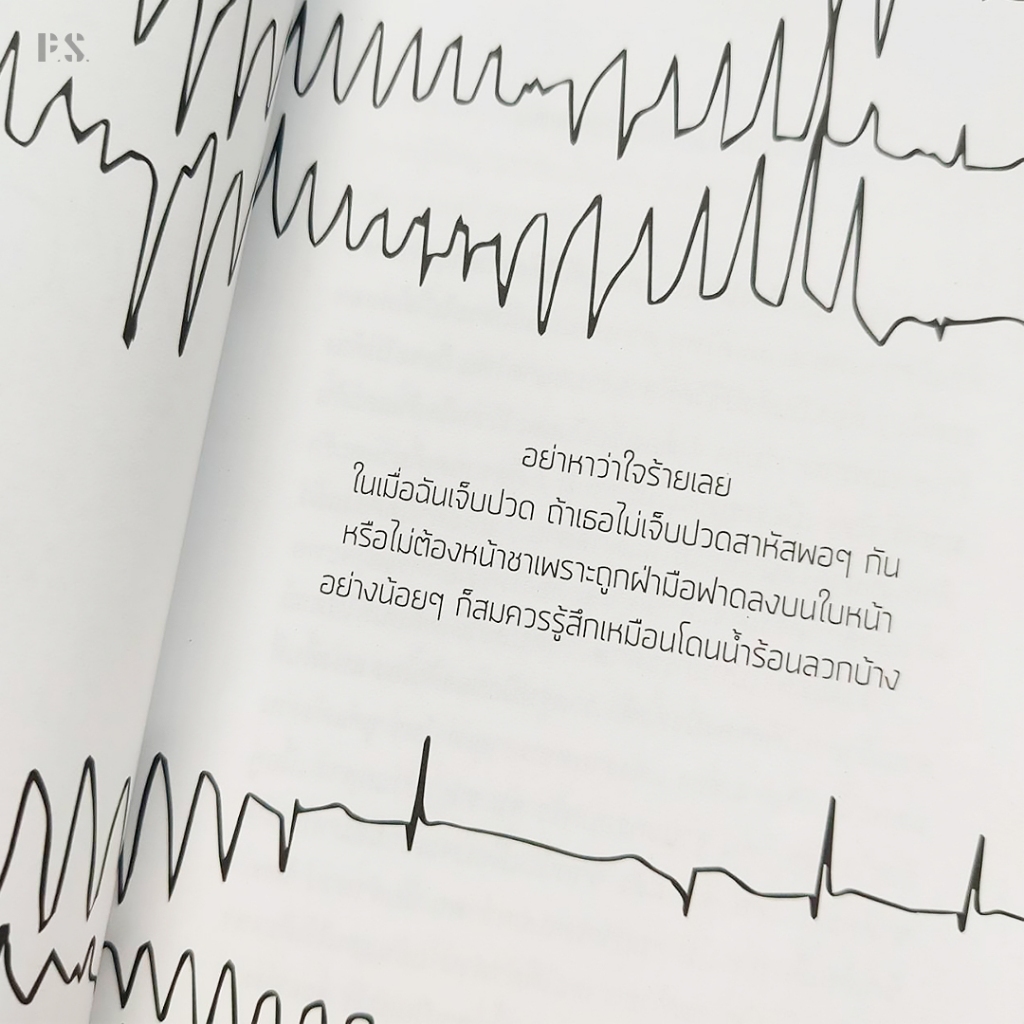 P.S.
อย่าหาว่าใจร้ายเลย
ในเมื่อฉันเจ็บปวด ถ้าเธอไม่เจ็บปวดสาหัสพอๆ กัน
หรือไม่ต้องหน้าชาเพราะถูกฝ่ามือฟาดลงบนใบหน้า
อย่างน้อยๆ ก็สมควรรู้สึกเหมือนโดนน้ำร้อนลวกบ้าง